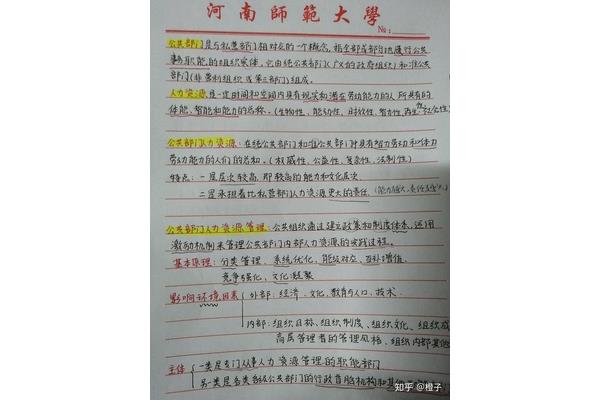 河南師範大學
№:
公共部门是与私营部门相对应的一个概念,指全部或部分地履行公共
事务职能的组织实体,它由纯公共部门(广义的政府组织)和准公共
部门(非营利组织或第三部门)组成。
人力资源是一定时间和空间内具有现实和潜在劳动能力的人所具有的
体能、智能和心能的总称。(生物性、能动性、时效性、智力性、再生性、社会性)
公共部门人力资源:在纯公共部门和准公共部门中具有智力劳动和体力
劳动能力的人们的总和。(权威性、公益性、复杂性、法制性)
特点:一是层次较高,即较高的能力和文化层次
二是承担着比私营部门人力资源更大的责任.(能力越大,责任越大)
公共部门人力资源管理:公共组织通过建立政策和制度体系,运用
激励机制来管理公共部门内部人力资源的实践过程。
基本原理:分类管理、系统优化、能级对应、互补增值、
竞争强化、文化凝聚
影响环境因素
外部:经济、文化、教育与人口、技术.
内部:组织目标、组织制度、组织文化、组织成
高层管理者的管理风格、组织内部其他
主体
一类是专门从事人力资源管理的职能部门
另一类是各类各级公共部门的行政首脑机构和其他
知乎 @橙子